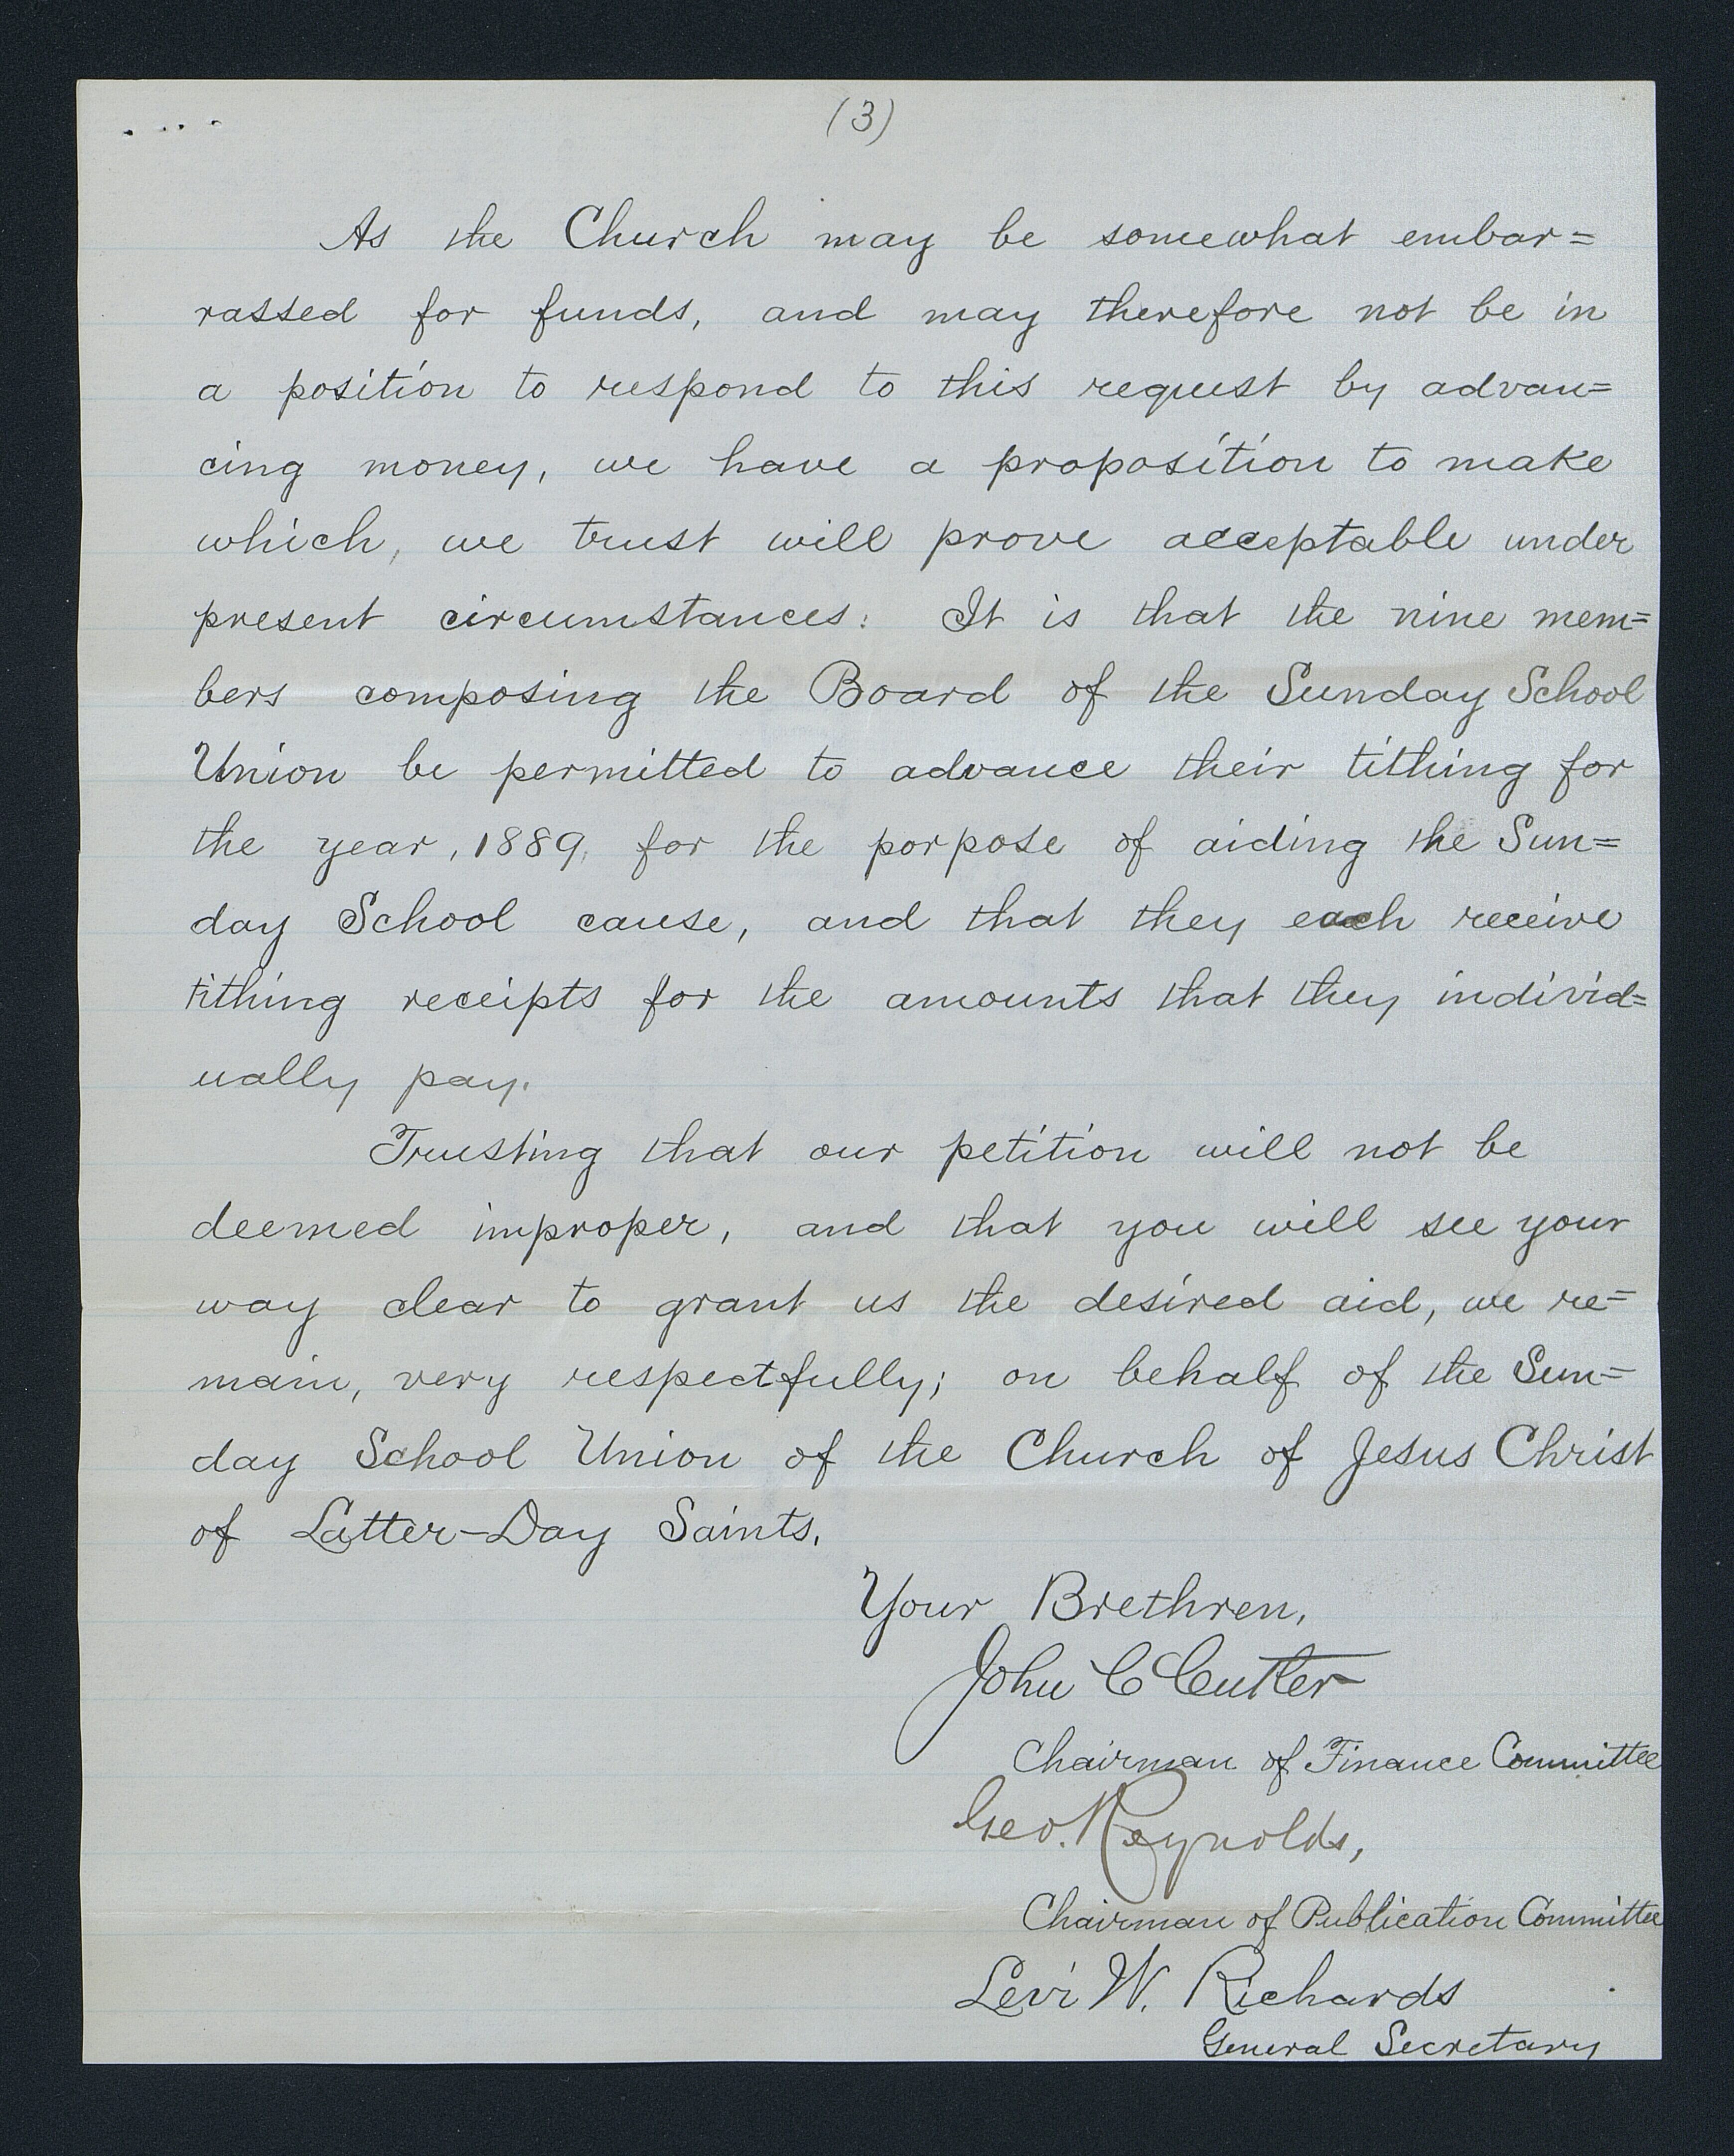 (3)
As the Church may be somewhat embar=
rassed for funds, and may therefore not be in
a position to respond to this request by advan=
cing money, we have a proposition to make
which, we trust will prove acceptable under
present circumstances: It is that the nine mem=
bers composing the Board of the Sunday School
Union be permitted to advance their tithing for
the year, 1889, for the porpose of aiding the Sun=
day School cause, and that they each receive
tithing receipts for the amounts that they individ=
ually pay.
Trusting that our petition will not be
deemed improper, and that you will see your
way clear to grant us the desired aid, we re=
main, very respectfully; on behalf of the Sun=
day School Union of the Church of Jesus Christ
of Latter-Day Saints.
Your Brethren,
John C Cutler
Chairman of Finance Committee
Geo. Reynolds,
Chairman of Publication Committee
Levi W. Richards
General Secretary